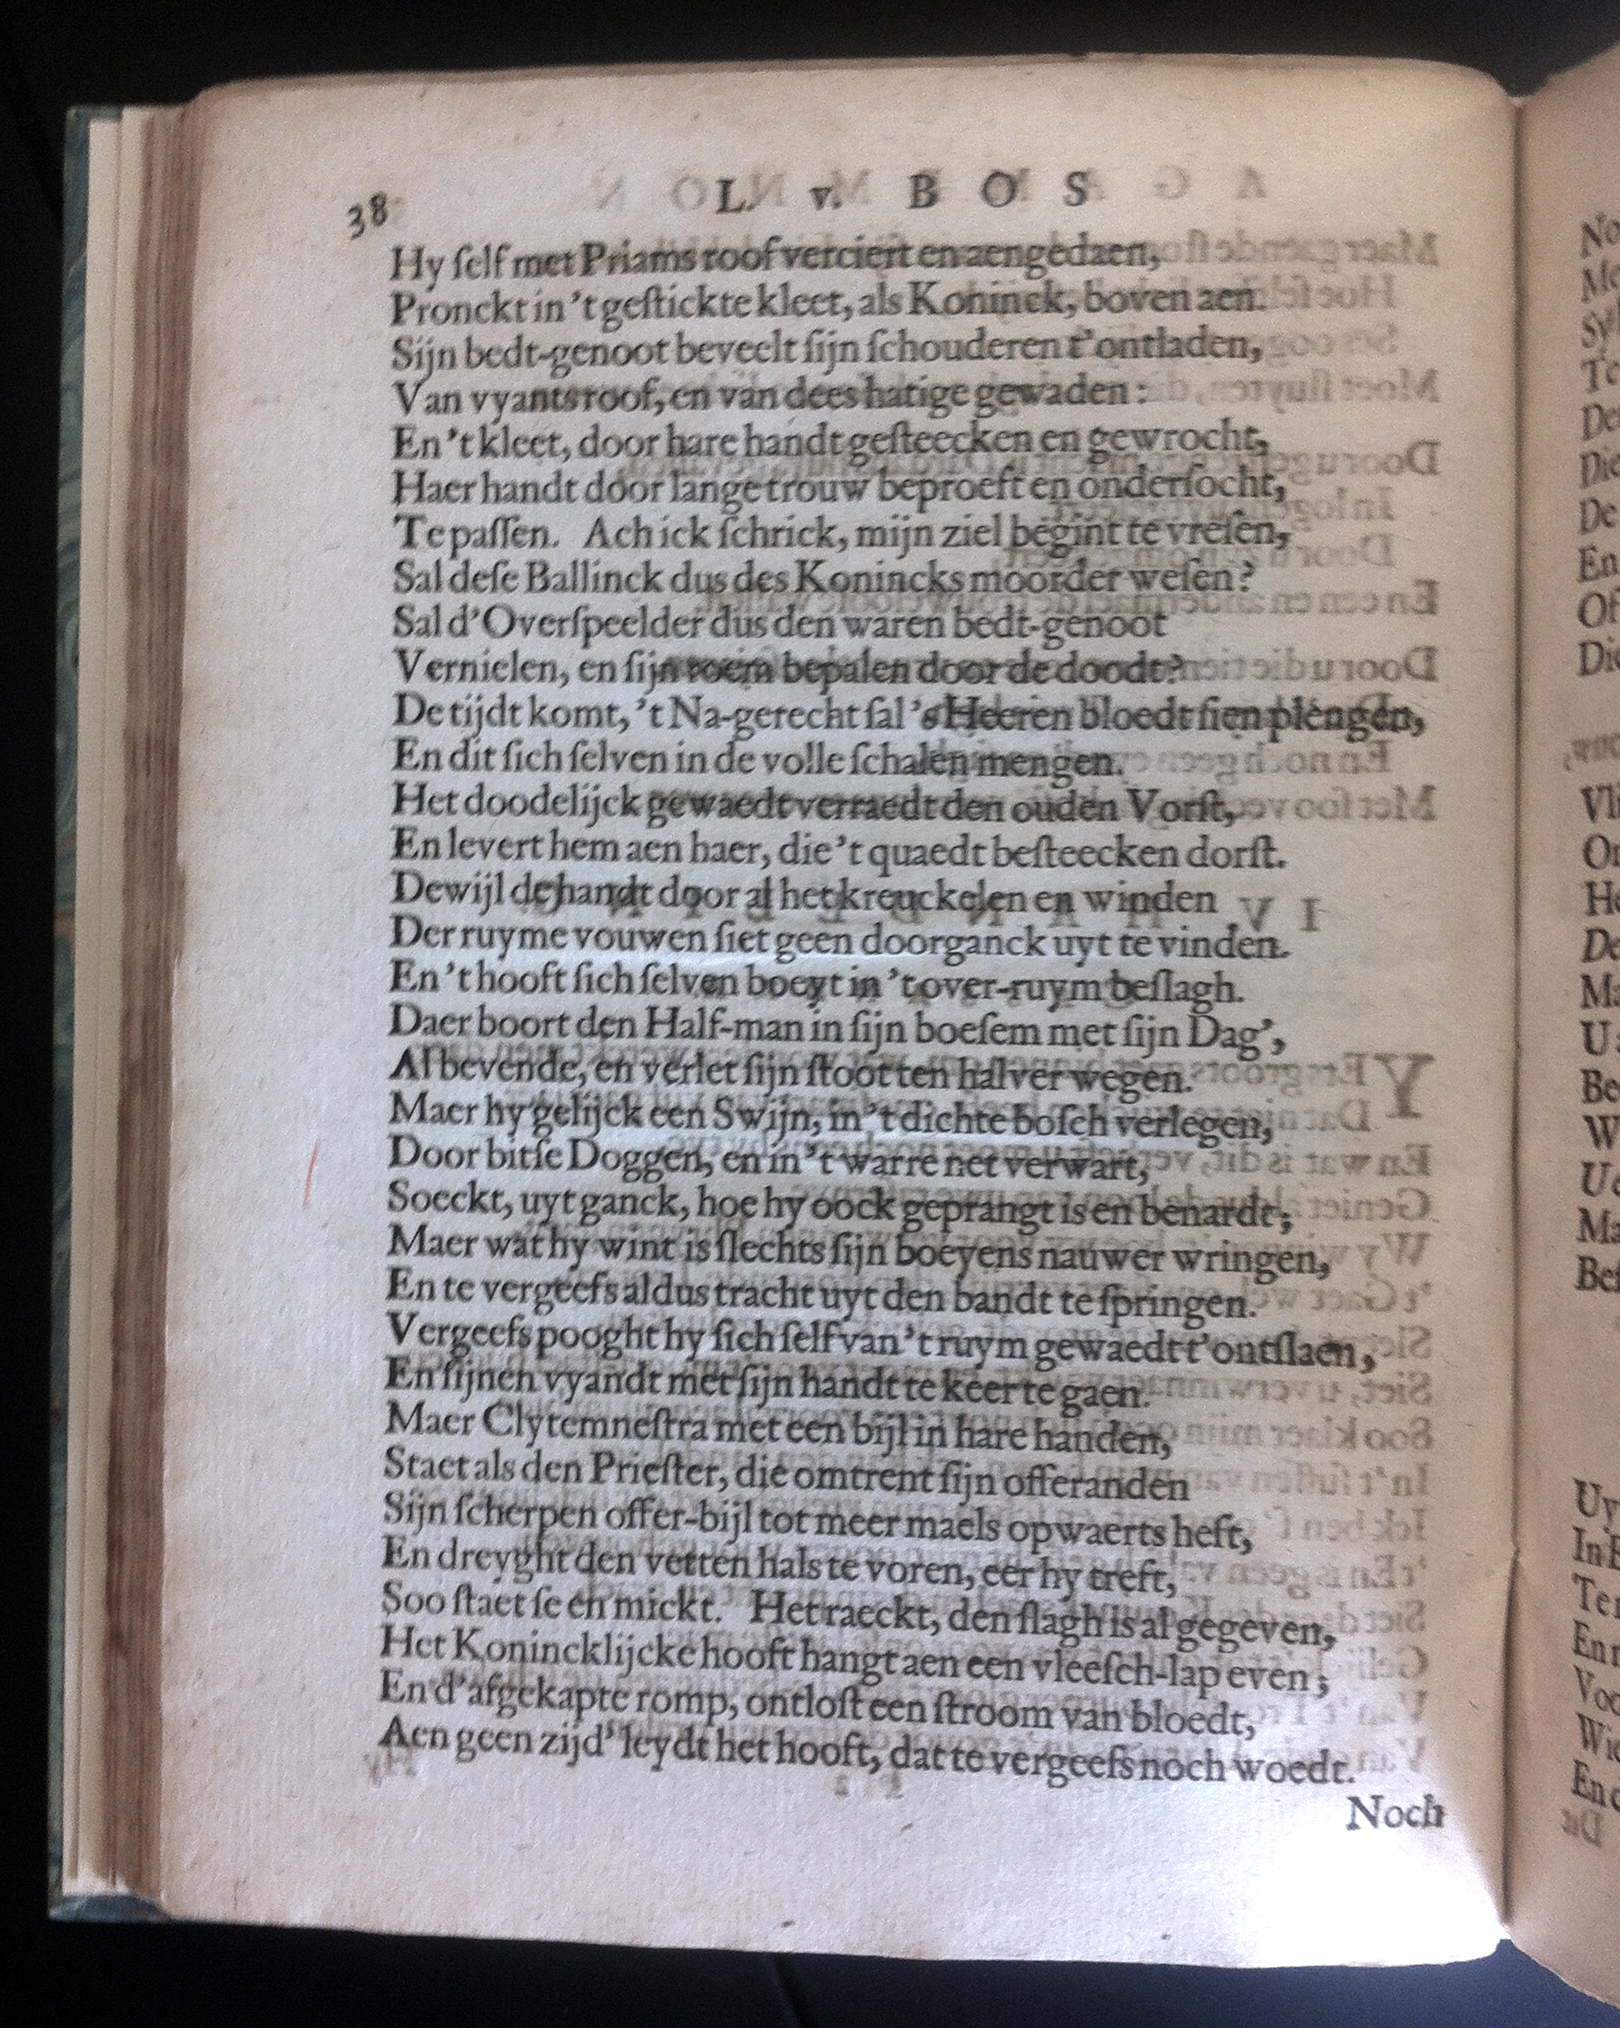 38
L. v. BOS
Hy ſelf met Priams roof verciert en aengedaen,
Pronckt in 't geſtickte kleet, als Koninck, boven aen.
Sijn bedt-genoot beveelt ſijn ſchouderen t'ontladen,
Van vyants roof, en van dees hatige gewaden:
En 't kleet, door hare handt geſteecken en gewrocht,
Haer handt door lange trouw beproeft en onderſocht,
Te paſſen. Ach ick ſchrick, mijn ziel begint te vreſen,
Sal deſe Ballinck dus des Konincks moorder weſen?
Sal d'Overſpeelder dus den waren bedt-genoot
Vernielen, en ſijn roem bepalen door de doodt?
De tijdt komt, 't Na-gerecht ſal 's Heeren bloedt ſien plengen,
En dit ſich ſelven in de volle ſchalen mengen.
Het doodelijck gewaedt verraedt den ouden Vorſt,
En levert hem aen haer, die 't quaedt beſteecken dorſt.
Dewijl de handt door al het kreuckelen en winden
Der ruyme vouwen ſiet geen doorganck uyt te vinden.
En 't hooft ſich ſelven boeyt in 't over-ruym beſlagh.
Daer boort den Half-man in ſijn boeſem met ſijn Dag',
Al bevende, en verlet ſijn ſtoot ten halver wegen.
Maer hy gelijck een Swijn, in 't dichte boſch verlegen,
Door bitſe Doggen, en in 't warre net verwart,
Soeckt, uyt ganck, hoe hy oock geprangt is en benardt;
Maer wat hy wint is ſlechts ſijn boeyens nauwer wringen,
En te vergeefs aldus tracht uyt den bandt te ſpringen.
Vergeefs pooght hy ſich ſelf van 't ruym gewaedt t'ontſlaen,
En ſijnen vyandt met ſijn handt te keer te gaen.
Maer Clytemneſtra met een bijl in hare handen,
Staet als den Prieſter, die omtrent ſijn offeranden
Sijn ſcherpen offer-bijl tot meer maels opwaerts heft,
En dreyght den vetten hals te voren, eer hy treft,
Soo ſtaet ſe en mickt. Het raeckt, den ſlagh is al gegeven,
Het Konincklijcke hooft hangt aen een vleeſch-lap even;
En d'afgekapte romp, ontloſt een ſtroom van bloedt,
Aen geen zijd' leydt het hooft, dat te vergeefs noch woedt.
Noch